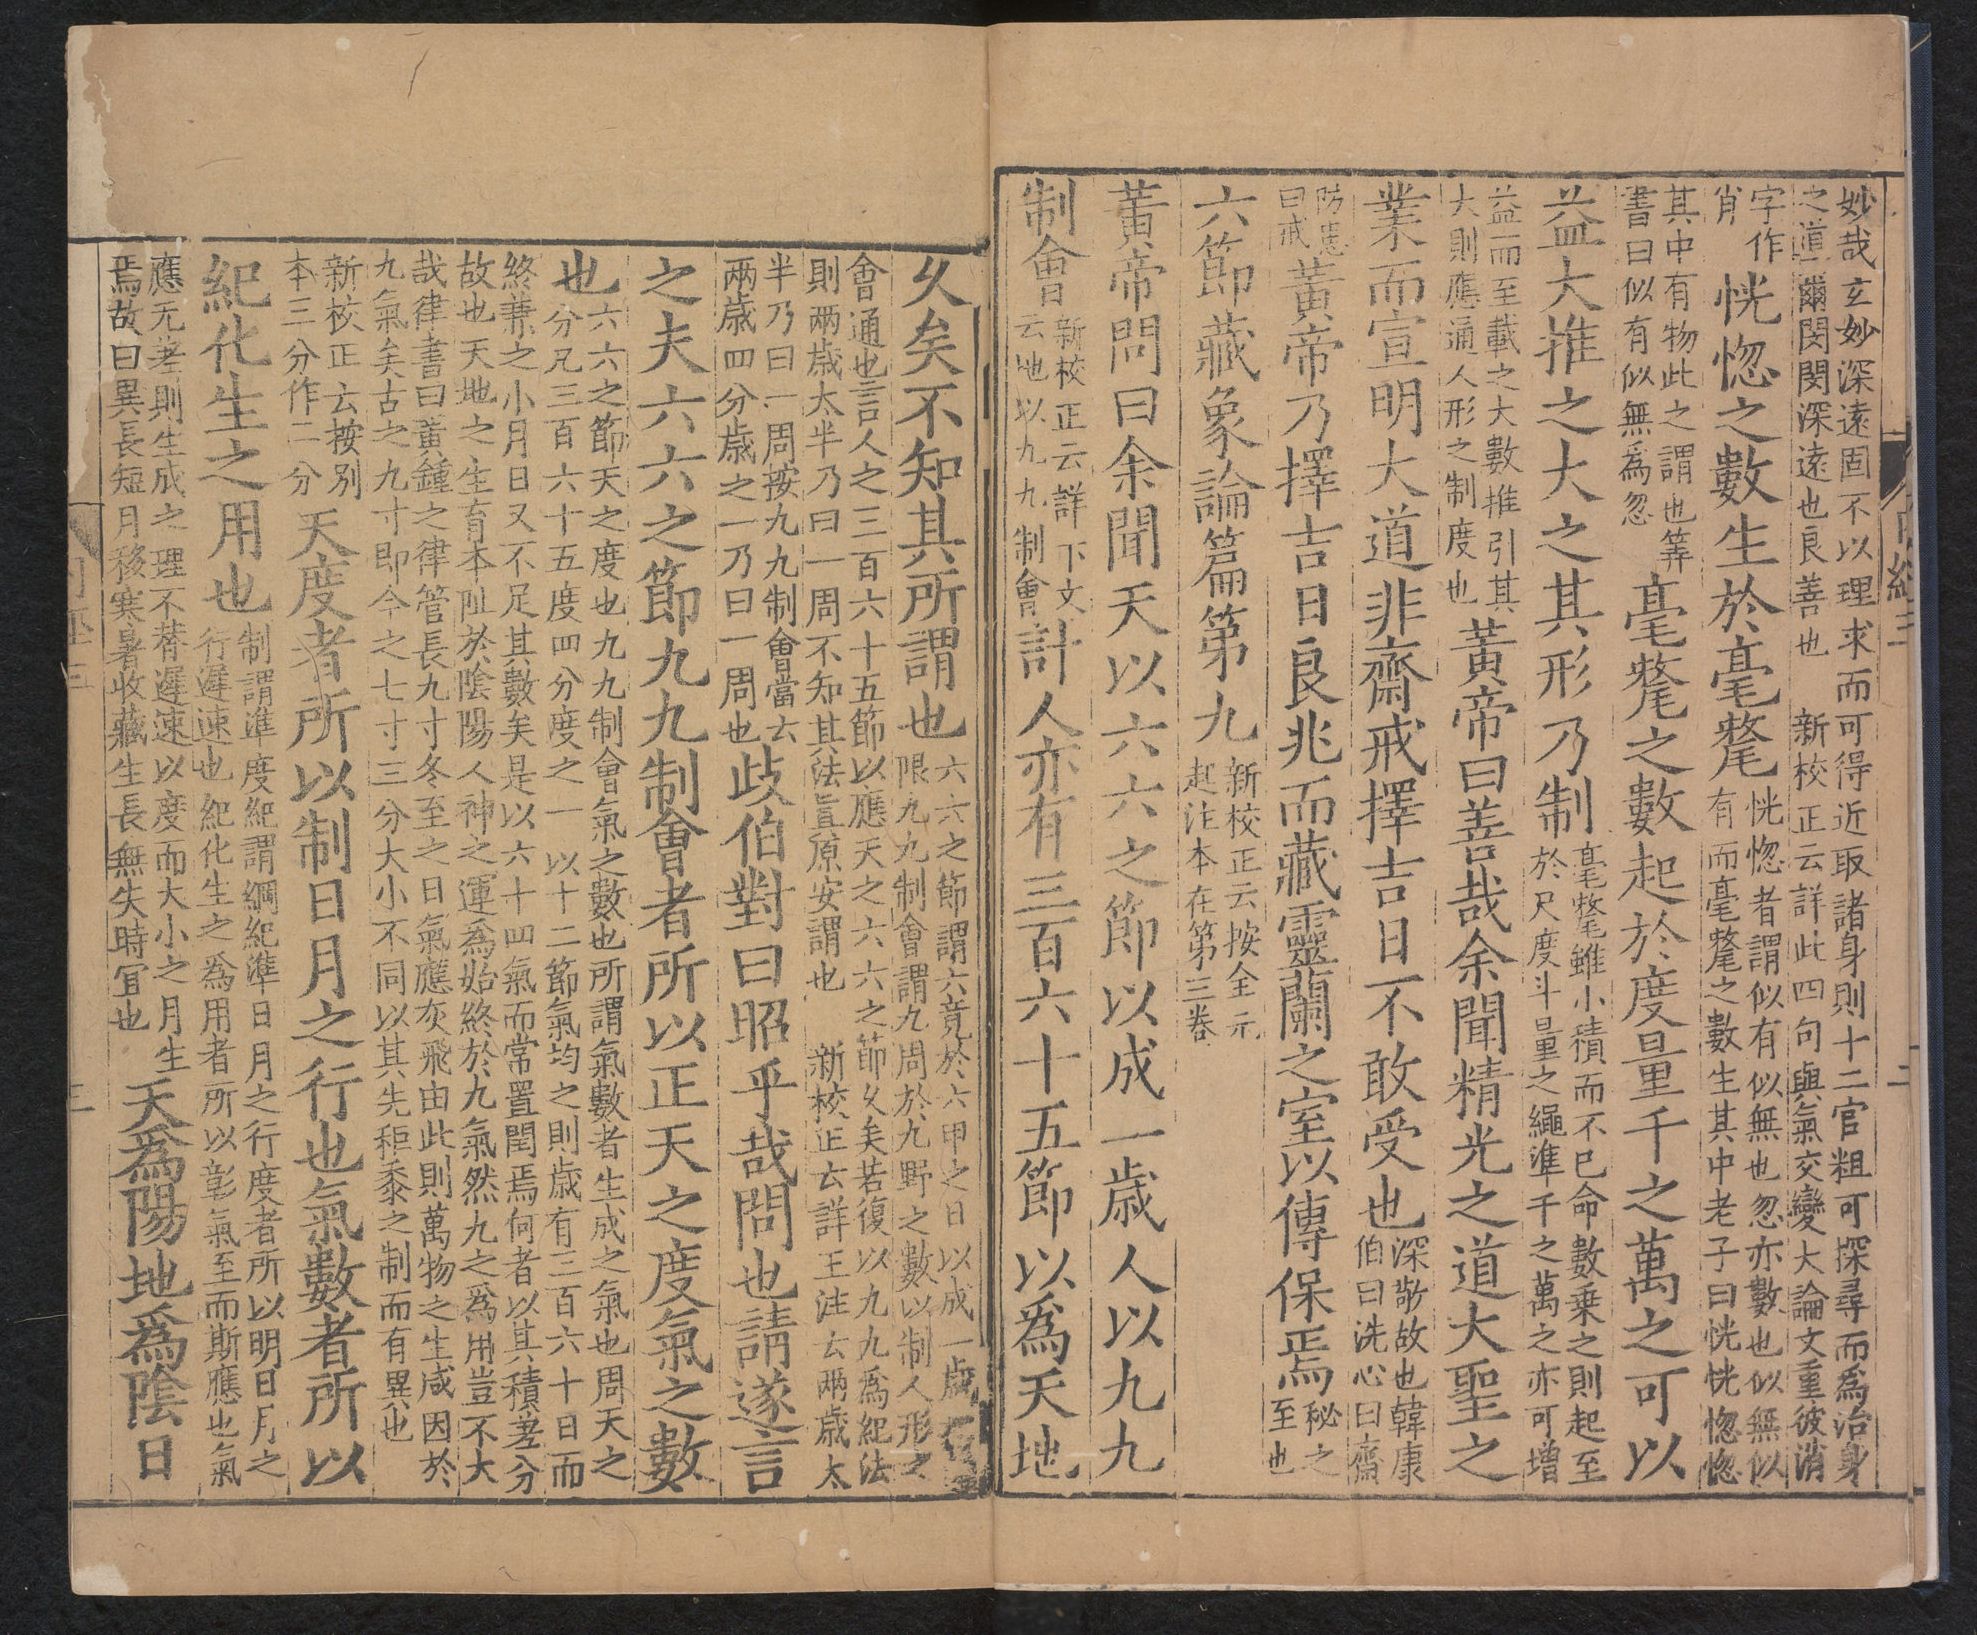 妙哉玄妙深遠固不以理求而可得近取諸身則十二官粗可探尋而為治身之道爾閔閔深遠也良善也 新校正云詳此四句與氣交變大論文重彼消
字作肖恍惚之數生於毫氂恍惚者謂似有似無也忽亦數也似無似有而毫氂之數生其中老子曰恍恍惚惚
其中有物此之謂也筭書曰似有似無為忽毫氂之數起於度量千之萬之可以
益大推之大之其形乃制毫氂雖小積而不已命數乘之則起至於尺度斗量之繩準千之萬之亦可增
益而至載之大數推引其大則應通人形之制度也黃帝曰善哉余聞精光之道大聖之
業而宣明大道非齋戒擇吉日不敢受也深敬故也韓康伯曰洗心曰齋
防患曰戒黃帝乃擇吉日良兆而藏靈蘭之室以傳保焉秘之至也
六節藏象論篇第九新校正云按全元起注本在第三卷
黃帝問曰余聞天以六六之節以成一歲人以九九
制會新校正云詳下文云地以九九制會計人亦有三百六十五節以為天地
久矣不知其所謂也六六之節謂六竟於六甲之日以成一歲之節限九九制會謂九周於九野之數以制人形之
會通也言人之三百六十五節以應天之六六之節久矣若復以九九為紀法則兩歲太半乃曰一周不知其法真原安謂也 新校正云詳王注云兩歲太
半乃曰一周按九九制會當云兩歲四分歲之一乃曰一周也歧伯對曰昭乎哉問也請遂言
之夫六六之節九九制會者所以正天之度氣之數
也六六之節天之度也九九制會氣之數也所謂氣數者生成之氣也周天之分凡三百六十五度四分度之一以十二節氣均之則歲有三百六十日而
終兼之小月日又不足其數矣是以六十四氣而常置閏焉何者以其積差分故也天地之生育本阯於陰陽人神之運為始終於九氣然九之為用豈不大
哉律書曰黃鍾之律管長九寸冬至之日氣應灰飛由此則萬物之生咸因於九氣矣古之九寸即今之七寸三分大小不同以其先秬黍之制而有異也
新校正云按別本三分作二分天度者所以制日月之行也氣數者所以
紀化生之用也制謂準度紀謂綱紀準日月之行度者所以明日月之行遲速也紀化生之為用者所以彰氣至而斯應也氣
應无差則生成之理不替遲速以度而大小之月生焉故曰異長短月移寒暑收藏生長無失時宜也天為陽地為陰日